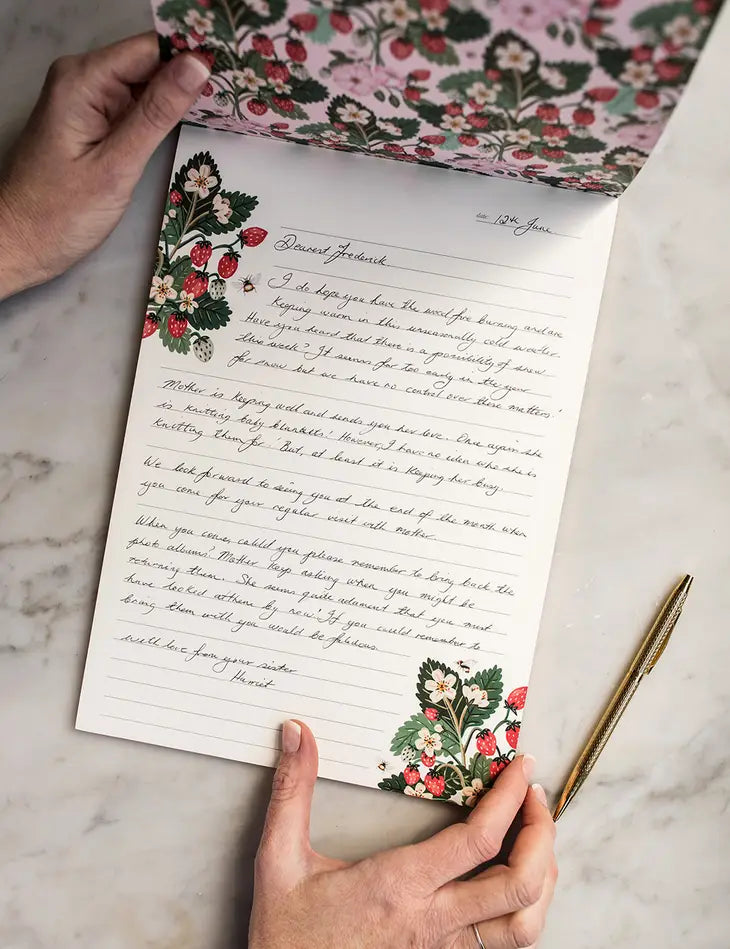 date: 12th June
Dearest Frederick
I do hope you have the wood fire burning and are
keeping warm in this unseasonally cold weather.
Have you heard that there is a possibility of snow
this week? It seems far too early in the year
for snow but we have no control over these matters!
Mother is keeping well and sends you her love. Once again she
is knitting baby blankets! However, I have no eden who she is
knitting them for! But, at least it is keeping her busy.
We look forward to seeing you at the end of the month when
you come for your regular visit with Mother.
When you come, could you please remember to bring back the
photo albums? Mother keep asking when you might be
returning them. She seems quite adament that you must
have looked at them by now! If you could remember to
bring them with you would be fabulous.
With love from your sister
Harriet